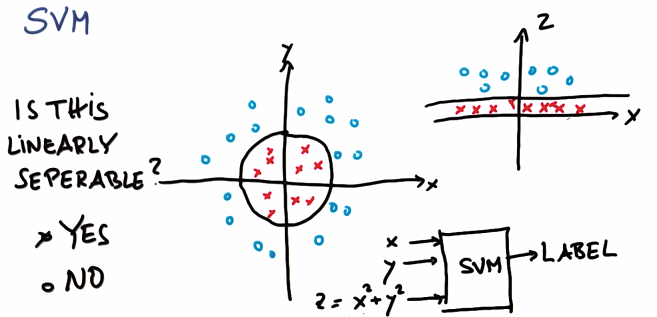 SVM
IS THIS
LINEARLY
SEPERABLE?
x YES
o NO
y
x
z
x
x
y
z = x²+y²
SVM
LABEL